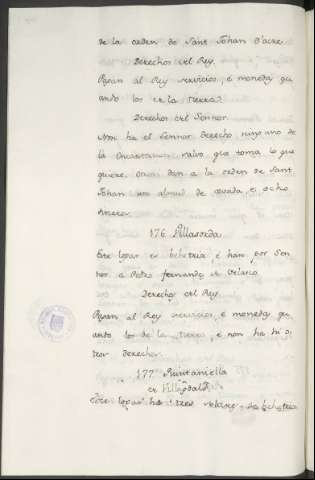 de la orden de Sant Johan d'acre
Derechos del Rey.
Pagan al Rey servicios, é moneda qu
ando los de la tierra.
Derechos del Sennor.
Non ha el Sennor derecho ninguno de
la salvo que toma lo que
quiere. dan a la orden de Sant
Johan un almud de cevada, e ocho
dineros.
176 Villasorda
Este logar es behetria, é han por Sen
nor a Pedro fernandez de Velasco
Derechos del Rey.
Pagan al Rey servicios, é moneda qu
ando los de la tierra, é non ha hi o
tros derechos.
177 Quintaniella
de
Este logar ha tres la behetria